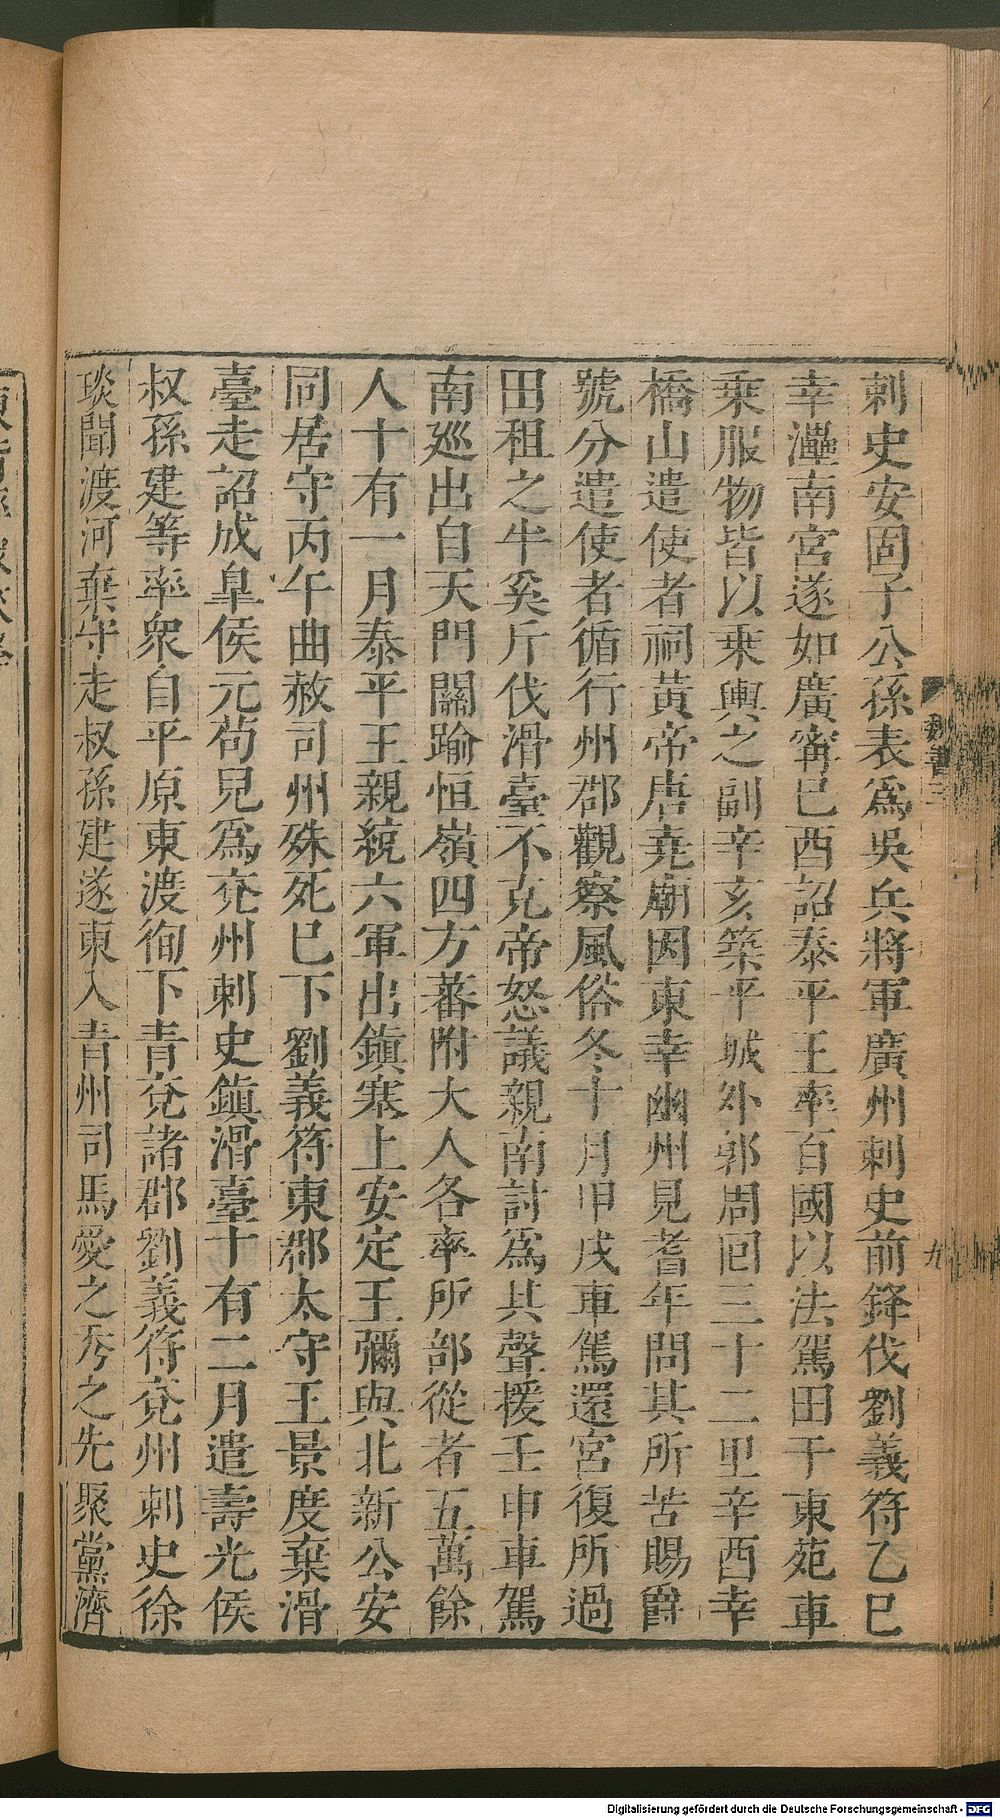 刺史安固子公孫表爲吳兵將軍廣州刺史前鋒伐劉義符乙巳
幸灅南宮遂如廣甯巳酉詔泰平王率百國以法駕田于東苑車
乗服物皆以乗輿之副辛亥築平城外郭周囘三十二里辛酉幸
橋山遣使者祠黃帝唐堯廟因東幸幽州見耆年問其所苦賜爵
號分遣使者循行州郡觀察風俗冬十月甲戌車駕還宮復所過
田租之半奚斤伐滑臺不克帝怒議親南討爲其聲援壬申車駕
南巡出自天門關踰恒嶺四方蕃附大人各率所部從者五萬餘
人十有一月泰平王親統六軍出鎭塞上安定王彌與北新公安
同居守丙午曲赦司州殊死已下劉義符東郡太守王景度棄滑
臺走詔成皐侯元苟兒爲兖州刺史鎭滑臺十有二月遣壽光侯
叔孫建等率衆自平原東渡徇下青兖諸郡劉義符兖州刺史徐
琰聞渡河棄守走叔孫建遂東入青州司馬愛之秀之先聚黨濟
魏書三
九
Digitalisierung gefördert durch die Deutsche Forschungsgemeinschaft - DFG